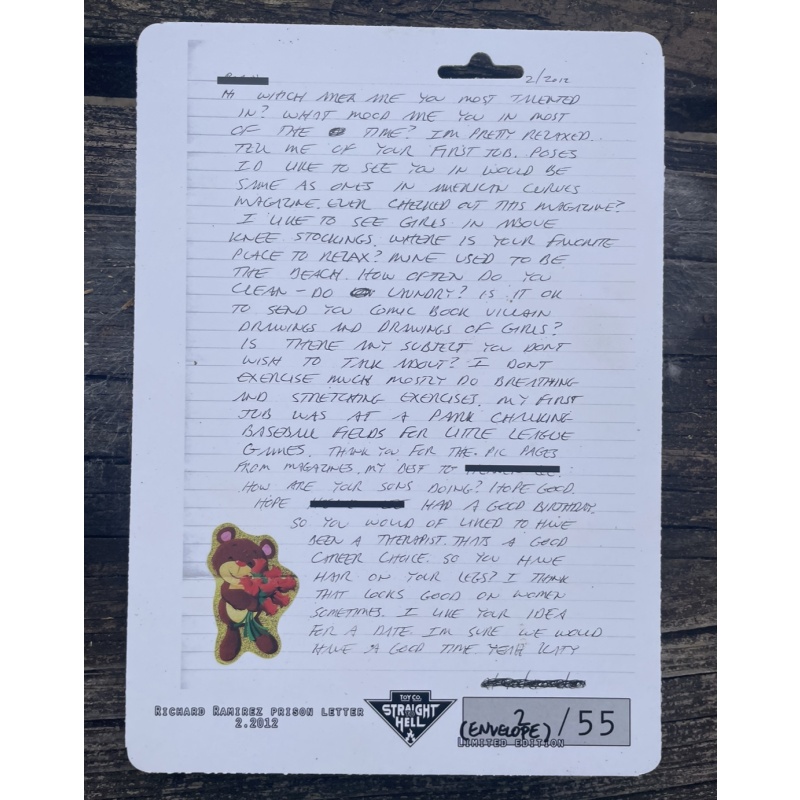 2/2012
HI WHICH AREA ARE YOU MOST TALENTED
IN? WHAT MOOD ARE YOU IN MOST
OF THE TIME? IM PRETTY RELAXED.
TELL ME OF YOUR FIRST JOB. POSES
I'D LIKE TO SEE YOU IN WOULD BE
SAME AS ONES IN AMERICAN CURVES
MAGAZINE. EVER CHECKED OUT THIS MAGAZINE?
I LIKE TO SEE GIRLS IN ABOVE
KNEE STOCKINGS. WHERE IS YOUR FAVORITE
PLACE TO RELAX? MINE USED TO BE
THE BEACH. HOW OFTEN DO YOU
CLEAN - DO LAUNDRY? IS IT OK
TO SEND YOU COMIC BOOK VILLAIN
DRAWINGS AND DRAWINGS OF GIRLS?
IS THERE ANY SUBJECT YOU DONT
WISH TO TALK ABOUT? I DONT
EXERCISE MUCH MOSTLY DO BREATHING
AND STRETCHING EXERCISES. MY FIRST
JOB WAS AT A PARK CHALKING
BASEBALL FIELDS FOR LITTLE LEAGUE
GAMES. THANK YOU FOR THE PIC PAGES
FROM MAGAZINES. MY BEST TO
HOW ARE YOUR SONS DOING? HOPE GOOD.
HOPE HAD A GOOD BIRTHDAY.
SO YOU WOULD OF LIKED TO HAVE
BEEN A THERAPIST. THATS A GOOD
CAREER CHOICE. SO YOU HAVE
HAIR ON YOUR LEGS? I THINK
THAT LOOKS GOOD ON WOMEN
SOMETIMES. I LIKE YOUR IDEA
FOR A DATE. IM SURE WE WOULD
HAVE A GOOD TIME YEAH
RICHARD RAMIREZ PRISON LETTER
2.2012
TOY CO.
STRAIGHT
TO
HELL
2 /55
(ENVELOPE)
LIMITED EDITION